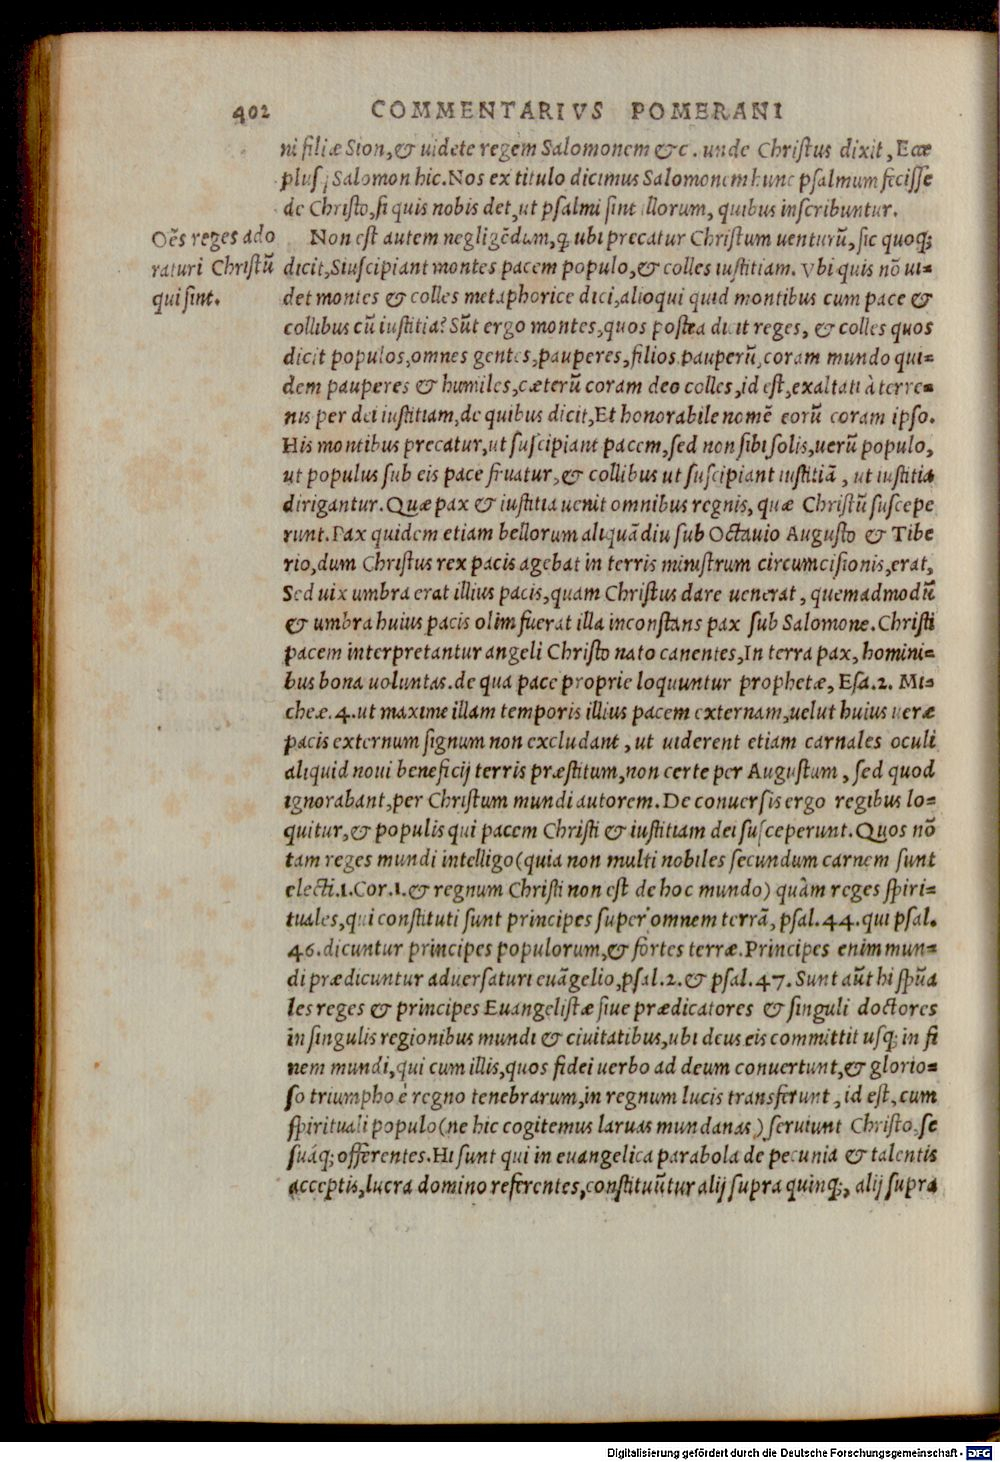 402 COMMENTARIVS POMERANI
ni filiæ Sion, & uidete regem Salomonem &c. unde Christus dixit, Ecce
plusq; Salomon hic. Nos ex titulo dicimus Salomonem hunc psalmum fecisse
de Christo, si quis nobis det, ut psalmi sint illorum, quibus inscribuntur.
Oēs reges ado
raturi Christū
qui sint.
Non est autem negligēdum, ꝙ ubi precatur Christum uenturū, sic quoq;
dicit, Siuscipiant montes pacem populo, & colles iustitiam. Vbi quis nō ui-
det montes & colles metaphorice dici, alioqui quid montibus cum pace &
collibus cū iustitia? Sūt ergo montes, quos postea dicit reges, & colles quos
dicit populos, omnes gentes, pauperes, filios pauperū, coram mundo qui-
dem pauperes & humiles, cæterū coram deo colles, id est, exaltati à terre-
nis per dei iustitiam, de quibus dicit, Et honorabile nomē eorū coram ipso.
His montibus precatur, ut suscipiant pacem, sed non sibi solis, uerū populo,
ut populus sub eis pace fruatur, & collibus ut suscipiant iustitiā, ut iustitia
dirigantur. Quæ pax & iustitia uenit omnibus regnis, quæ Christū suscepe
runt. Pax quidem etiam bellorum aliquādiu sub Octauio Augusto & Tibe
rio, dum Christus rex pacis agebat in terris ministrum circumcisionis, erat,
Sed uix umbra erat illius pacis, quam Christus dare uenerat, quemadmodū
& umbra huius pacis olim fuerat illa inconstans pax sub Salomone. Christi
pacem interpretantur angeli Christo nato canentes, In terra pax, homini-
bus bona uoluntas. de qua pace proprie loquuntur prophetæ, Esa. 2. Mi-
cheæ. 4. ut maxime illam temporis illius pacem externam, uelut huius ueræ
pacis externum signum non excludant, ut uiderent etiam carnales oculi
aliquid noui beneficij terris præstitum, non certe per Augustum, sed quod
ignorabant, per Christum mundi autorem. De conuersis ergo regibus lo-
quitur, & populis qui pacem Christi & iustitiam dei susceperunt. Quos nō
tam reges mundi intelligo (quia non multi nobiles secundum carnem sunt
electi. 1. Cor. 1. & regnum Christi non est de hoc mundo) quàm reges spiri-
tuales, qui constituti sunt principes super omnem terrā, psal. 44. qui psal.
46. dicuntur principes populorum, & fortes terræ. Principes enim mun-
di prædicuntur aduersaturi euāgelio, psal. 2. & psal. 47. Sunt aūt hi spūa
les reges & principes Euangelistæ siue prædicatores & singuli doctores
in singulis regionibus mundi & ciuitatibus, ubi deus eis committit usq; in fi
nem mundi, qui cum illis, quos fidei uerbo ad deum conuertunt, & glorio-
so triumpho è regno tenebrarum, in regnum lucis transferunt, id est, cum
spirituali populo (ne hic cogitemus laruas mundanas) seruiunt Christo, se
suáq; offerentes. Hi sunt qui in euangelica parabola de pecunia & talentis
acceptis, lucra domino referentes, constituūtur alij supra quinq;, alij supra
Digitalisierung gefördert durch die Deutsche Forschungsgemeinschaft - DFG